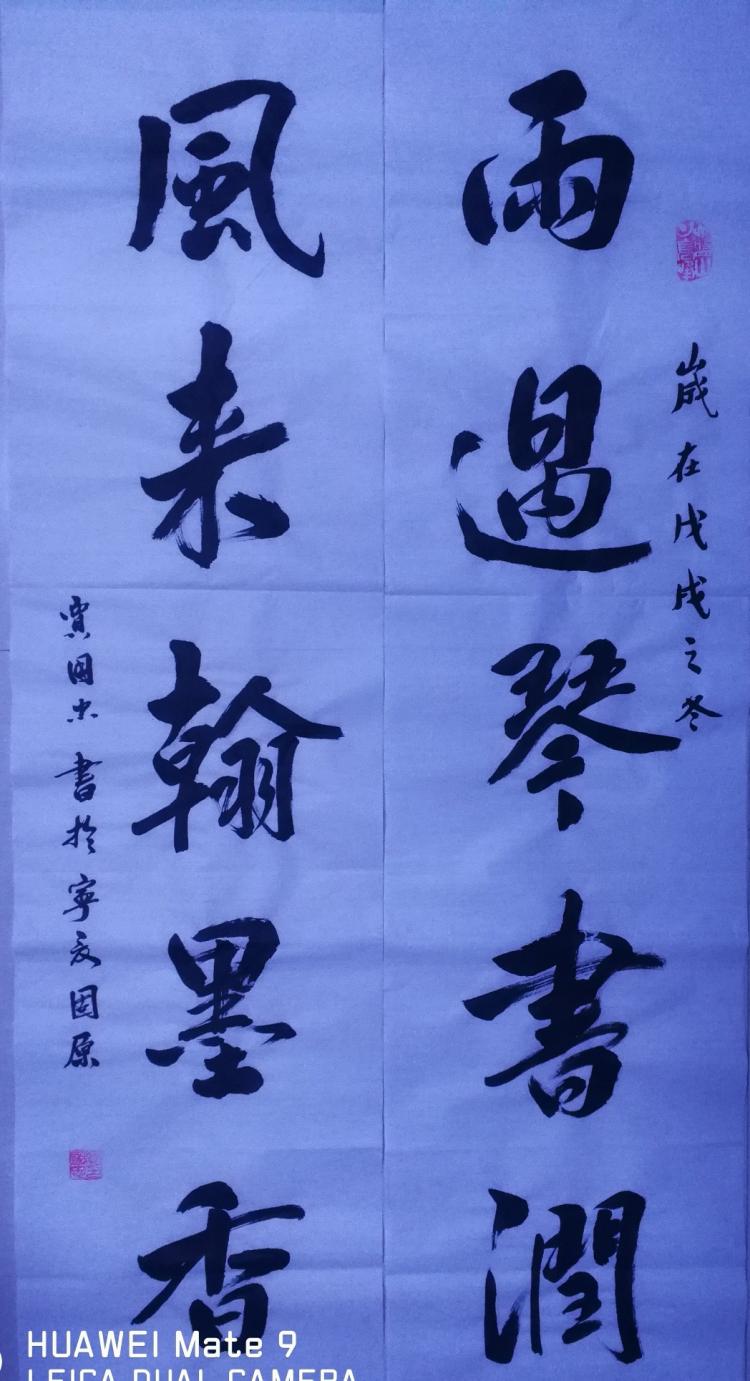 歲在戊戌之冬
雨過琴書潤
風来翰墨香
賈國忠 書於寧夏固原
HUAWEI Mate 9
LEICA DUAL CAMERA